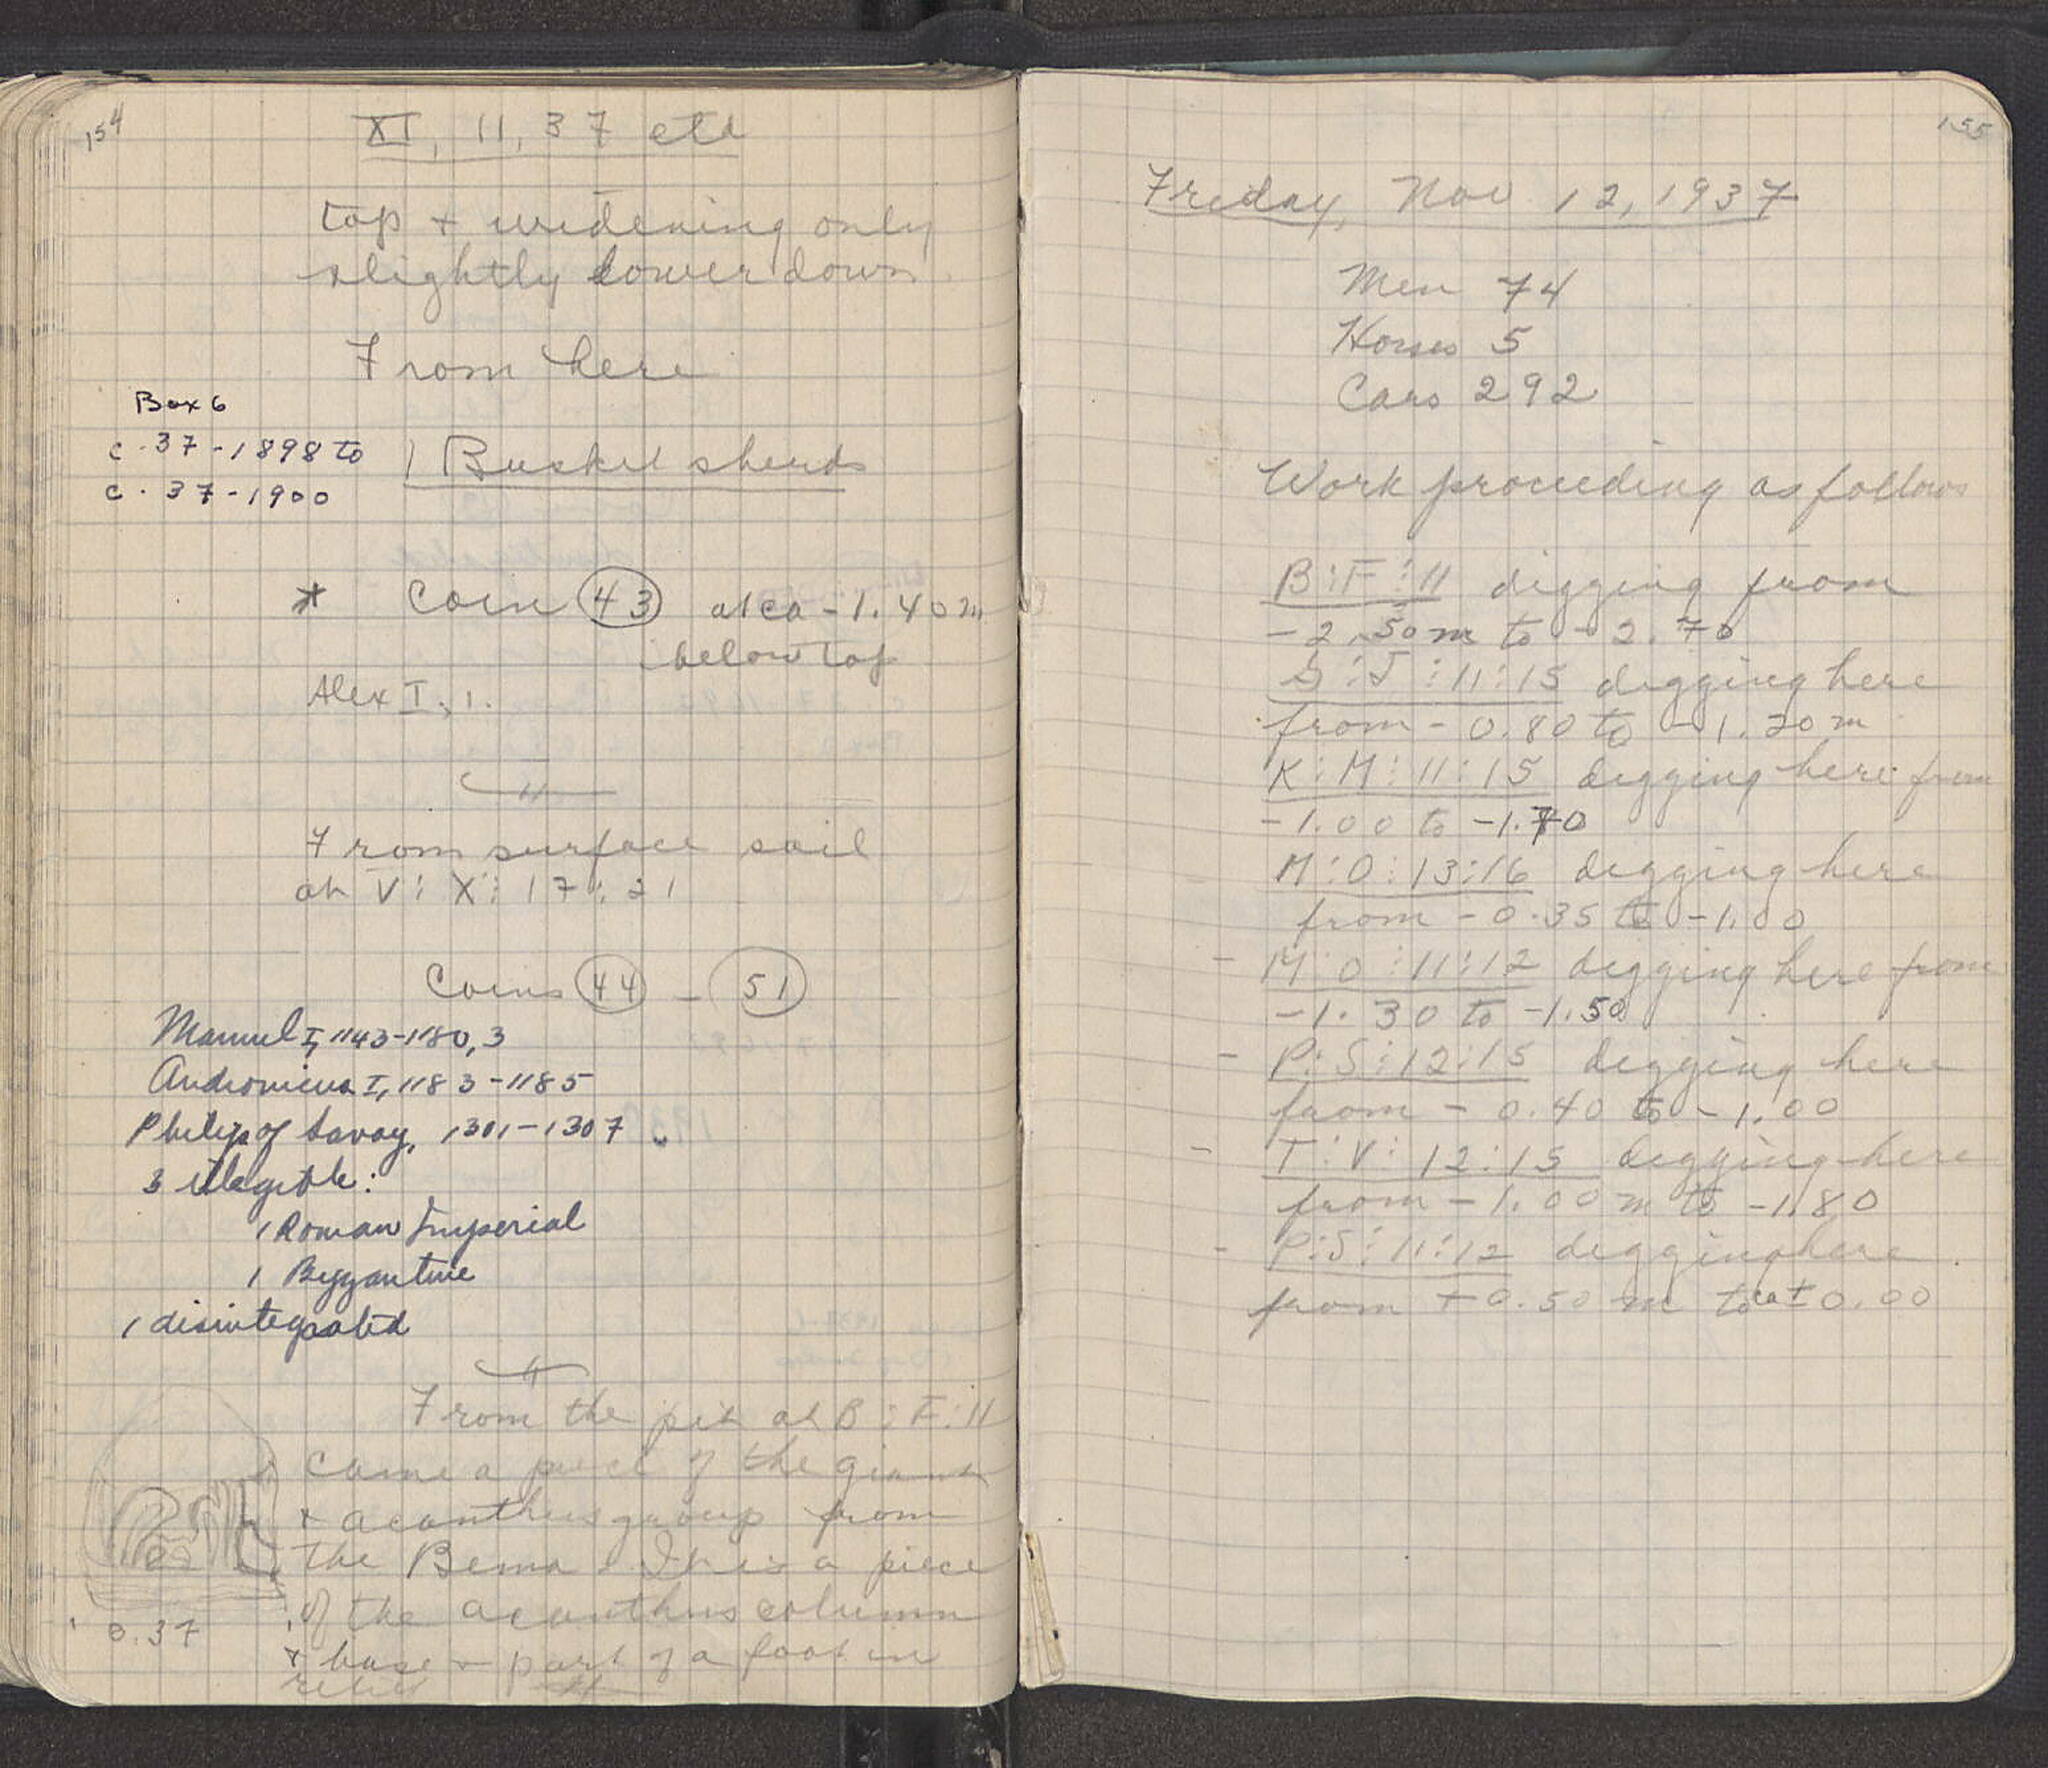 154
XI, 11, 37 ctd
top + widening only
slightly lower down
From here
Box 6
c. 37-1898 to
c. 37-1900
1 Basket sherds
* Coin 43 at ca -1.40 m
below top
Alex I, 1.
From surface soil
at V:X:17:21
Coins 44 - 51
Manuel I, 1143-1180, 3
Andronicus I, 1183-1185
Philip of Savoy, 1301-1307
3 illegible:
1 Roman Imperial
1 Byzantine
1 disintegrated
From the pit at B:F:11
came a piece of the giant
+ acanthus group from
the Bema. It is a piece
of the acanthus column
+ base + part of a foot in
relief
0.37
155
Friday, Nov 12, 1937
Men 74
Horses 5
Cars 292
Work proceeding as follows
B:F:11 digging from
-2.50 m to -2.70
S:J:11:15 digging here
from -0.80 to -1.20 m
K:M:11:15 digging here from
-1.00 to -1.70
M:O:13:16 digging here
from -0.35 to -1.00
- M:O:11:12 digging here from
-1.30 to -1.50
- P:S:12:15 digging here
from -0.40 to -1.00
- T:V:12:15 digging here
from -1.00 m to -1.80
- P:S:11:12 digging here
from +0.50 m to ca ±0.00